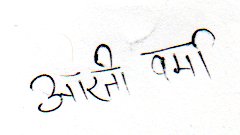 आरती वर्मा